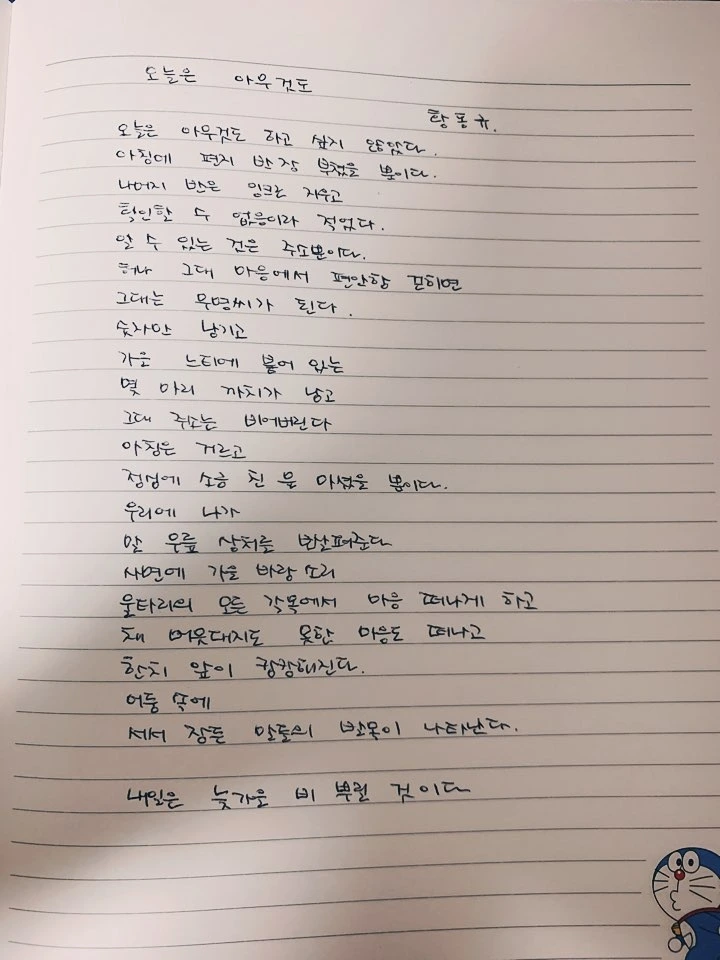 오늘은 아무것도
황동규.
오늘은 아무것도 하고 싶지 않았다.
아침에 편지 반 장 부쳤을 뿐이다.
나머지 반은 잉크로 지우고
확인할 수 없음이라 적었다.
알 수 있는 건은 주소뿐이다.
허나 그대 마음에서 편안함 걷히면
그대는 무명씨가 된다.
숫자만 남기고
가을 느티에 붙어 있는
몇 마리 까치가 남고
그대 주소는 비어버린다
아침은 거르고
점심에 소금 친 물 마셨을 뿐이다.
우리에 나가
말 무릎 상처를 보살펴준다
사면에 가을 바람 소리
울타리의 모든 각목에서 마음 떠나게 하고
채 머뭇대지도 못한 마음도 떠나고
한치 앞이 캄캄해진다.
어둠 속에
서서 잠든 말들의 발목이 나타난다.
내일은 늦가을 비 뿌릴 것이다